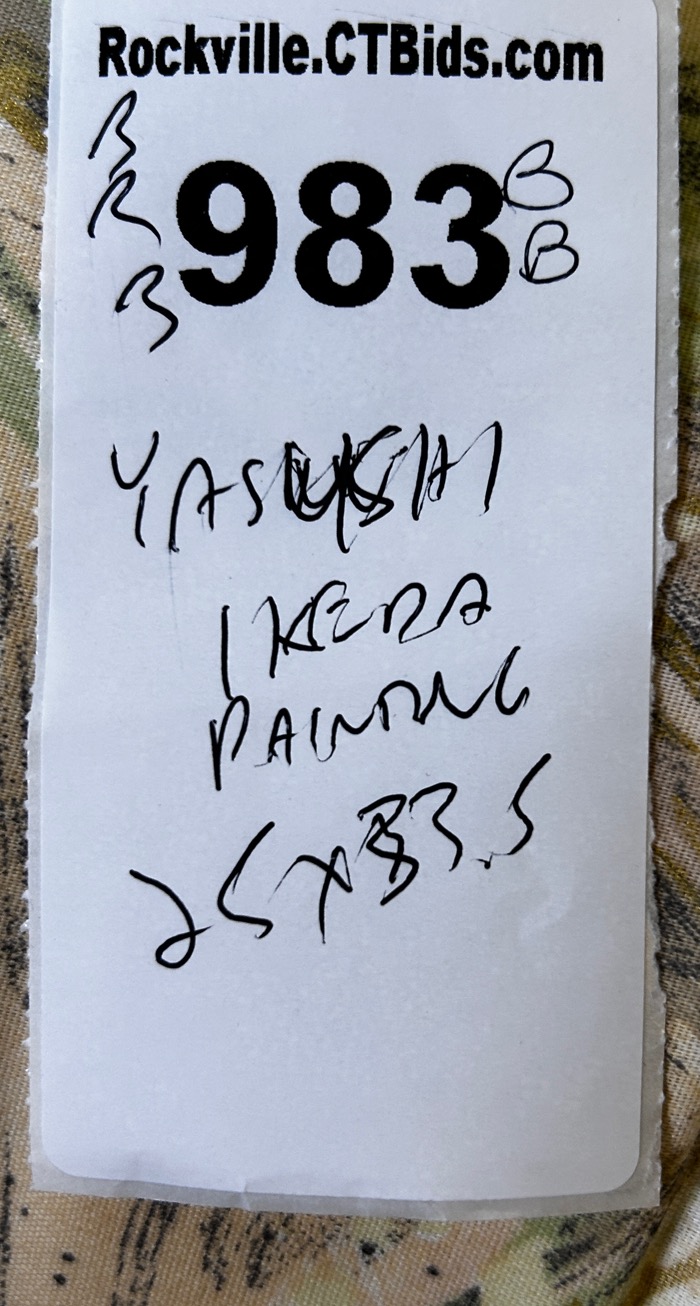 Rockville.CTBids.com
B
R
B
983
B
B
YASUSHI
IKEDA
PAINTING
25x33.5